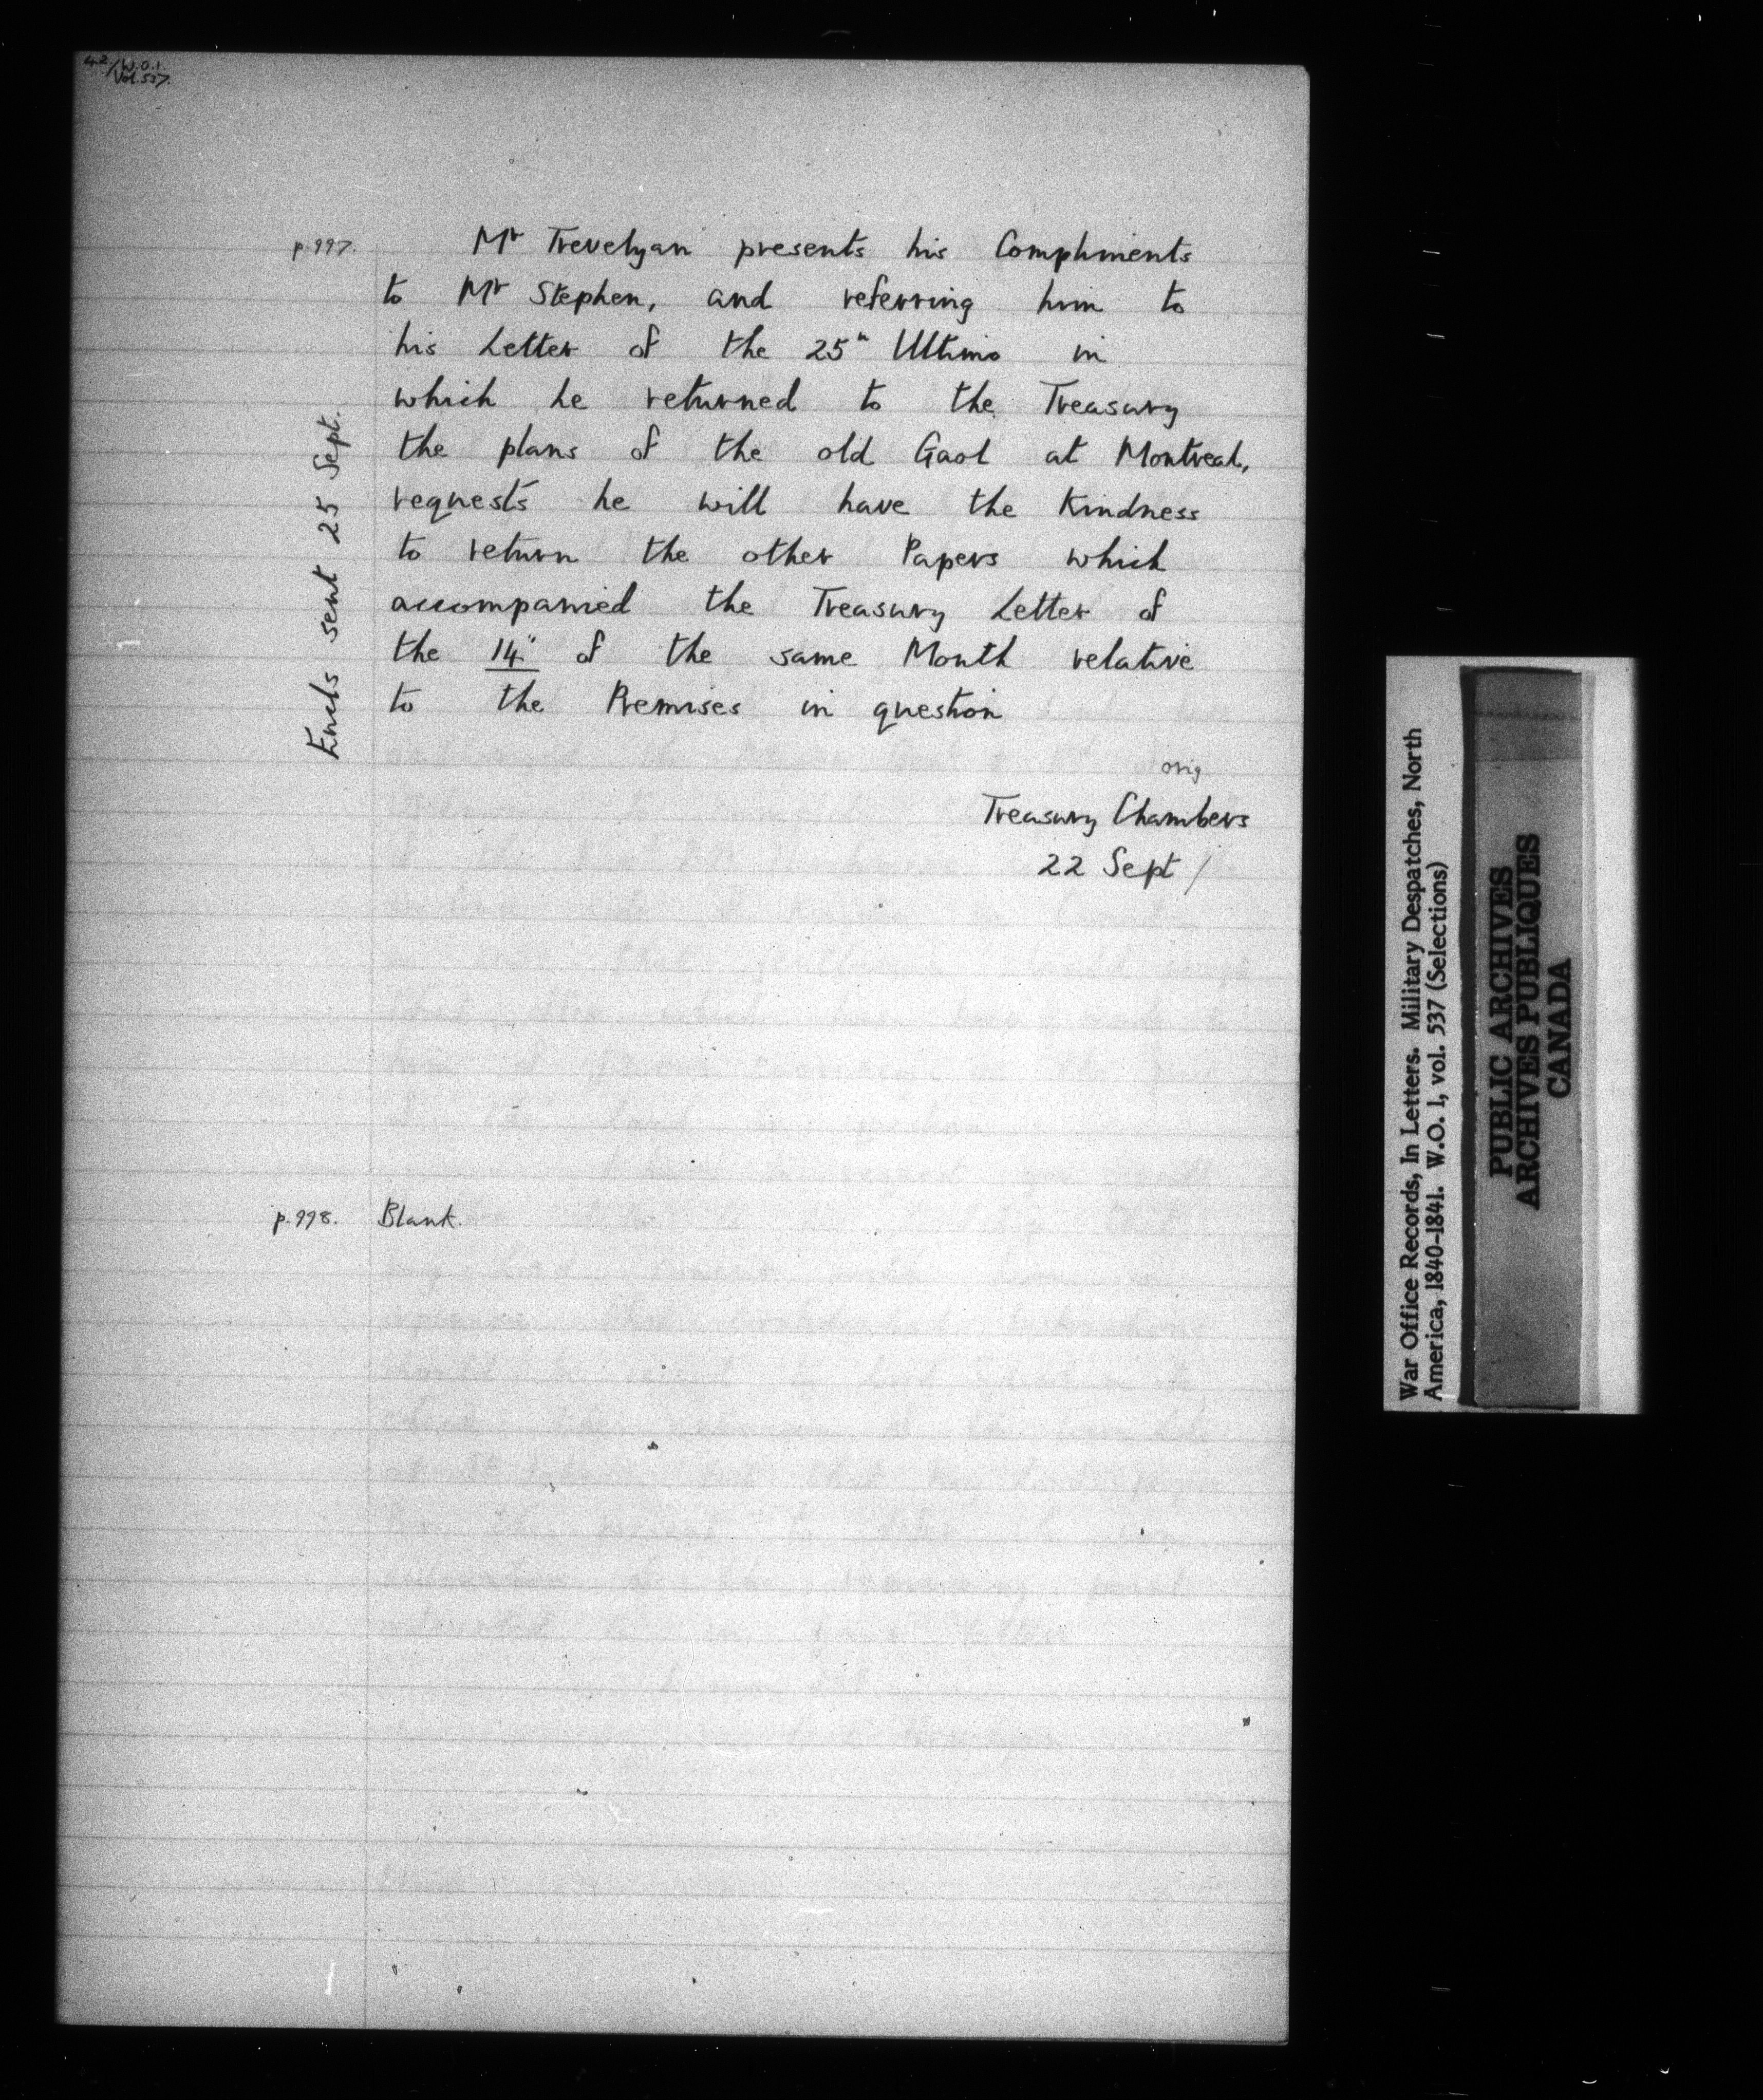 42/W.O.1.
Vol 537.
p.997.
Mr Trevelyan presents his Compliments
to Mr Stephen, and referring him to
his Letter of the 25" Ultimo in
which he returned to the Treasury
the plans of the old Gaol at Montreal,
requests he will have the Kindness
to return the other Papers which
accompanied the Treasury Letter of
the 14" of the same Month relative
to the Premises in question
Encls sent 25 Sept.
orig
Treasury Chambers
22 Sept /
p.998. Blank.
War Office Records, In Letters. Military Despatches, North
America, 1840-1841. W.O. 1, vol. 537 (Selections)
PUBLIC ARCHIVES
ARCHIVES PUBLIQUES
CANADA